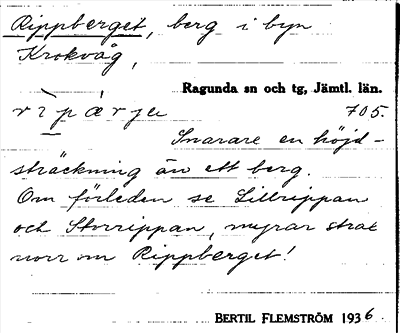 Rippberget, berg i byn
Krokvåg,
Ragunda sn och tg, Jämtl. län.
705.
Snarare en höjd-
sträckning än ett berg.
Om förleden se Lillrippan
och Storrippan, myrar strax
norr om Rippberget!
BERTIL FLEMSTRÖM 1936